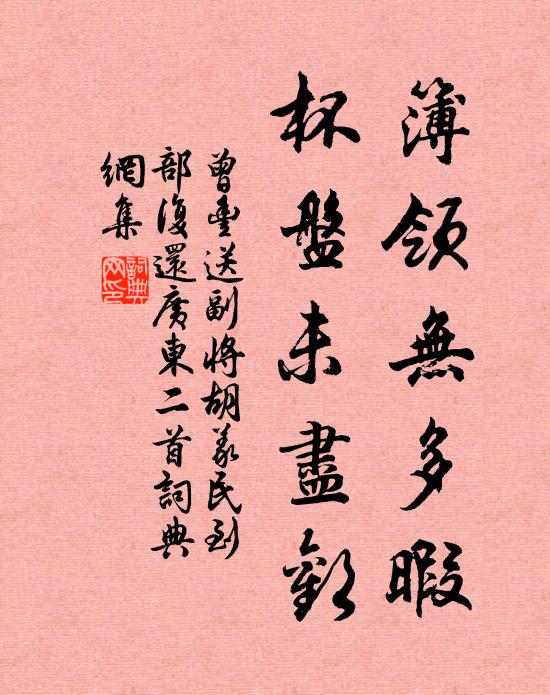 簿領無多暇
杯盤未盡歡
曾豐送副將胡義民到
部復還廣東二首詞典
網集
詞典
网印